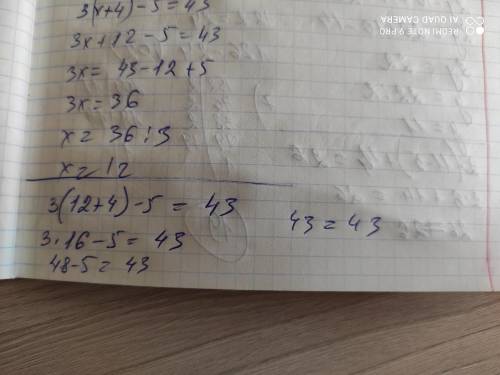 3(x+4)-5=43
3x+12-5=43
3x=43-12+5
3x=36
x=36:3
x=12
3(12+4)-5=43
3·16-5=43
48-5=43
43=43
REDMI NOTE 9 PRO
AI QUAD CAMERA